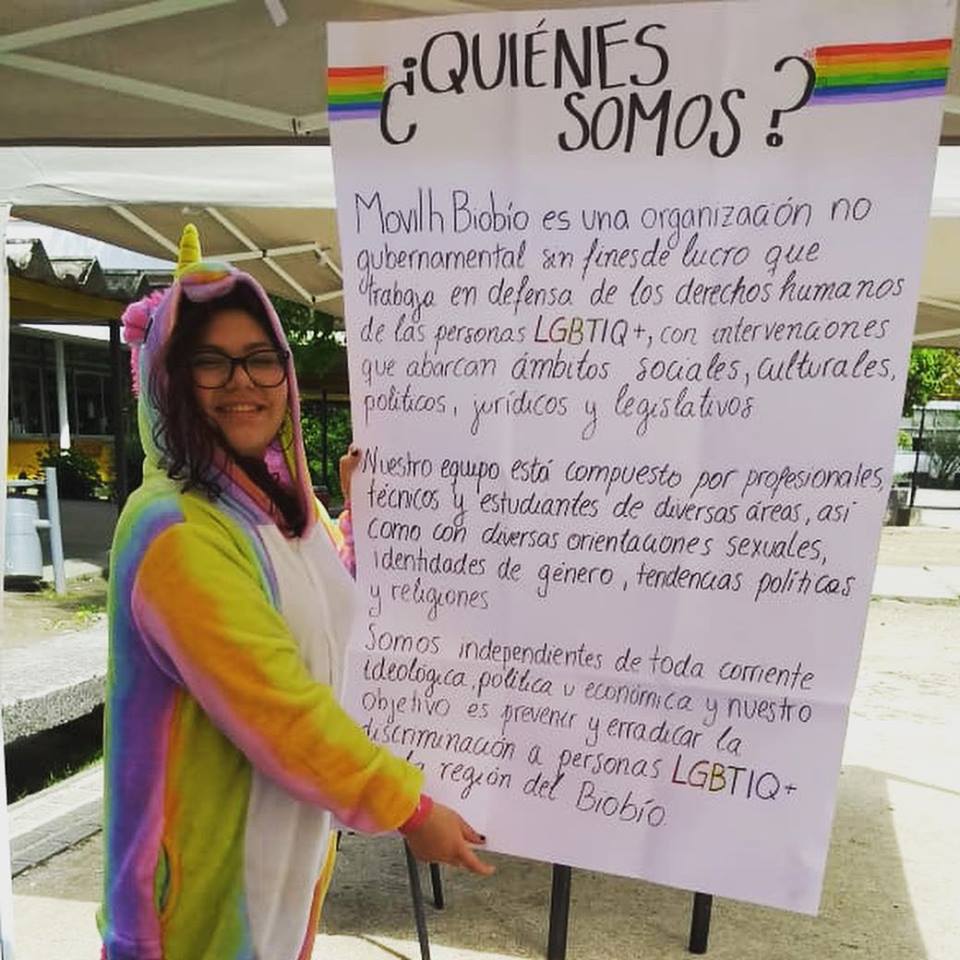 ¿QUIÉNES
SOMOS?
Movilh Biobío es una organización no
gubernamental sin fines de lucro que
trabaja en defensa de los derechos humanos
de las personas LGBTIQ+, con intervenciones
que abarcan ámbitos sociales, culturales,
políticos, jurídicos y legislativos
Nuestro equipo está compuesto por profesionales,
técnicos y estudiantes de diversas áreas, así
como con diversas orientaciones sexuales,
identidades de género, tendencias políticas
y religiones
Somos independientes de toda corriente
ideológica, política u económica y nuestro
objetivo es prevenir y erradicar la
discriminación a personas LGBTIQ+
la región del Biobío.